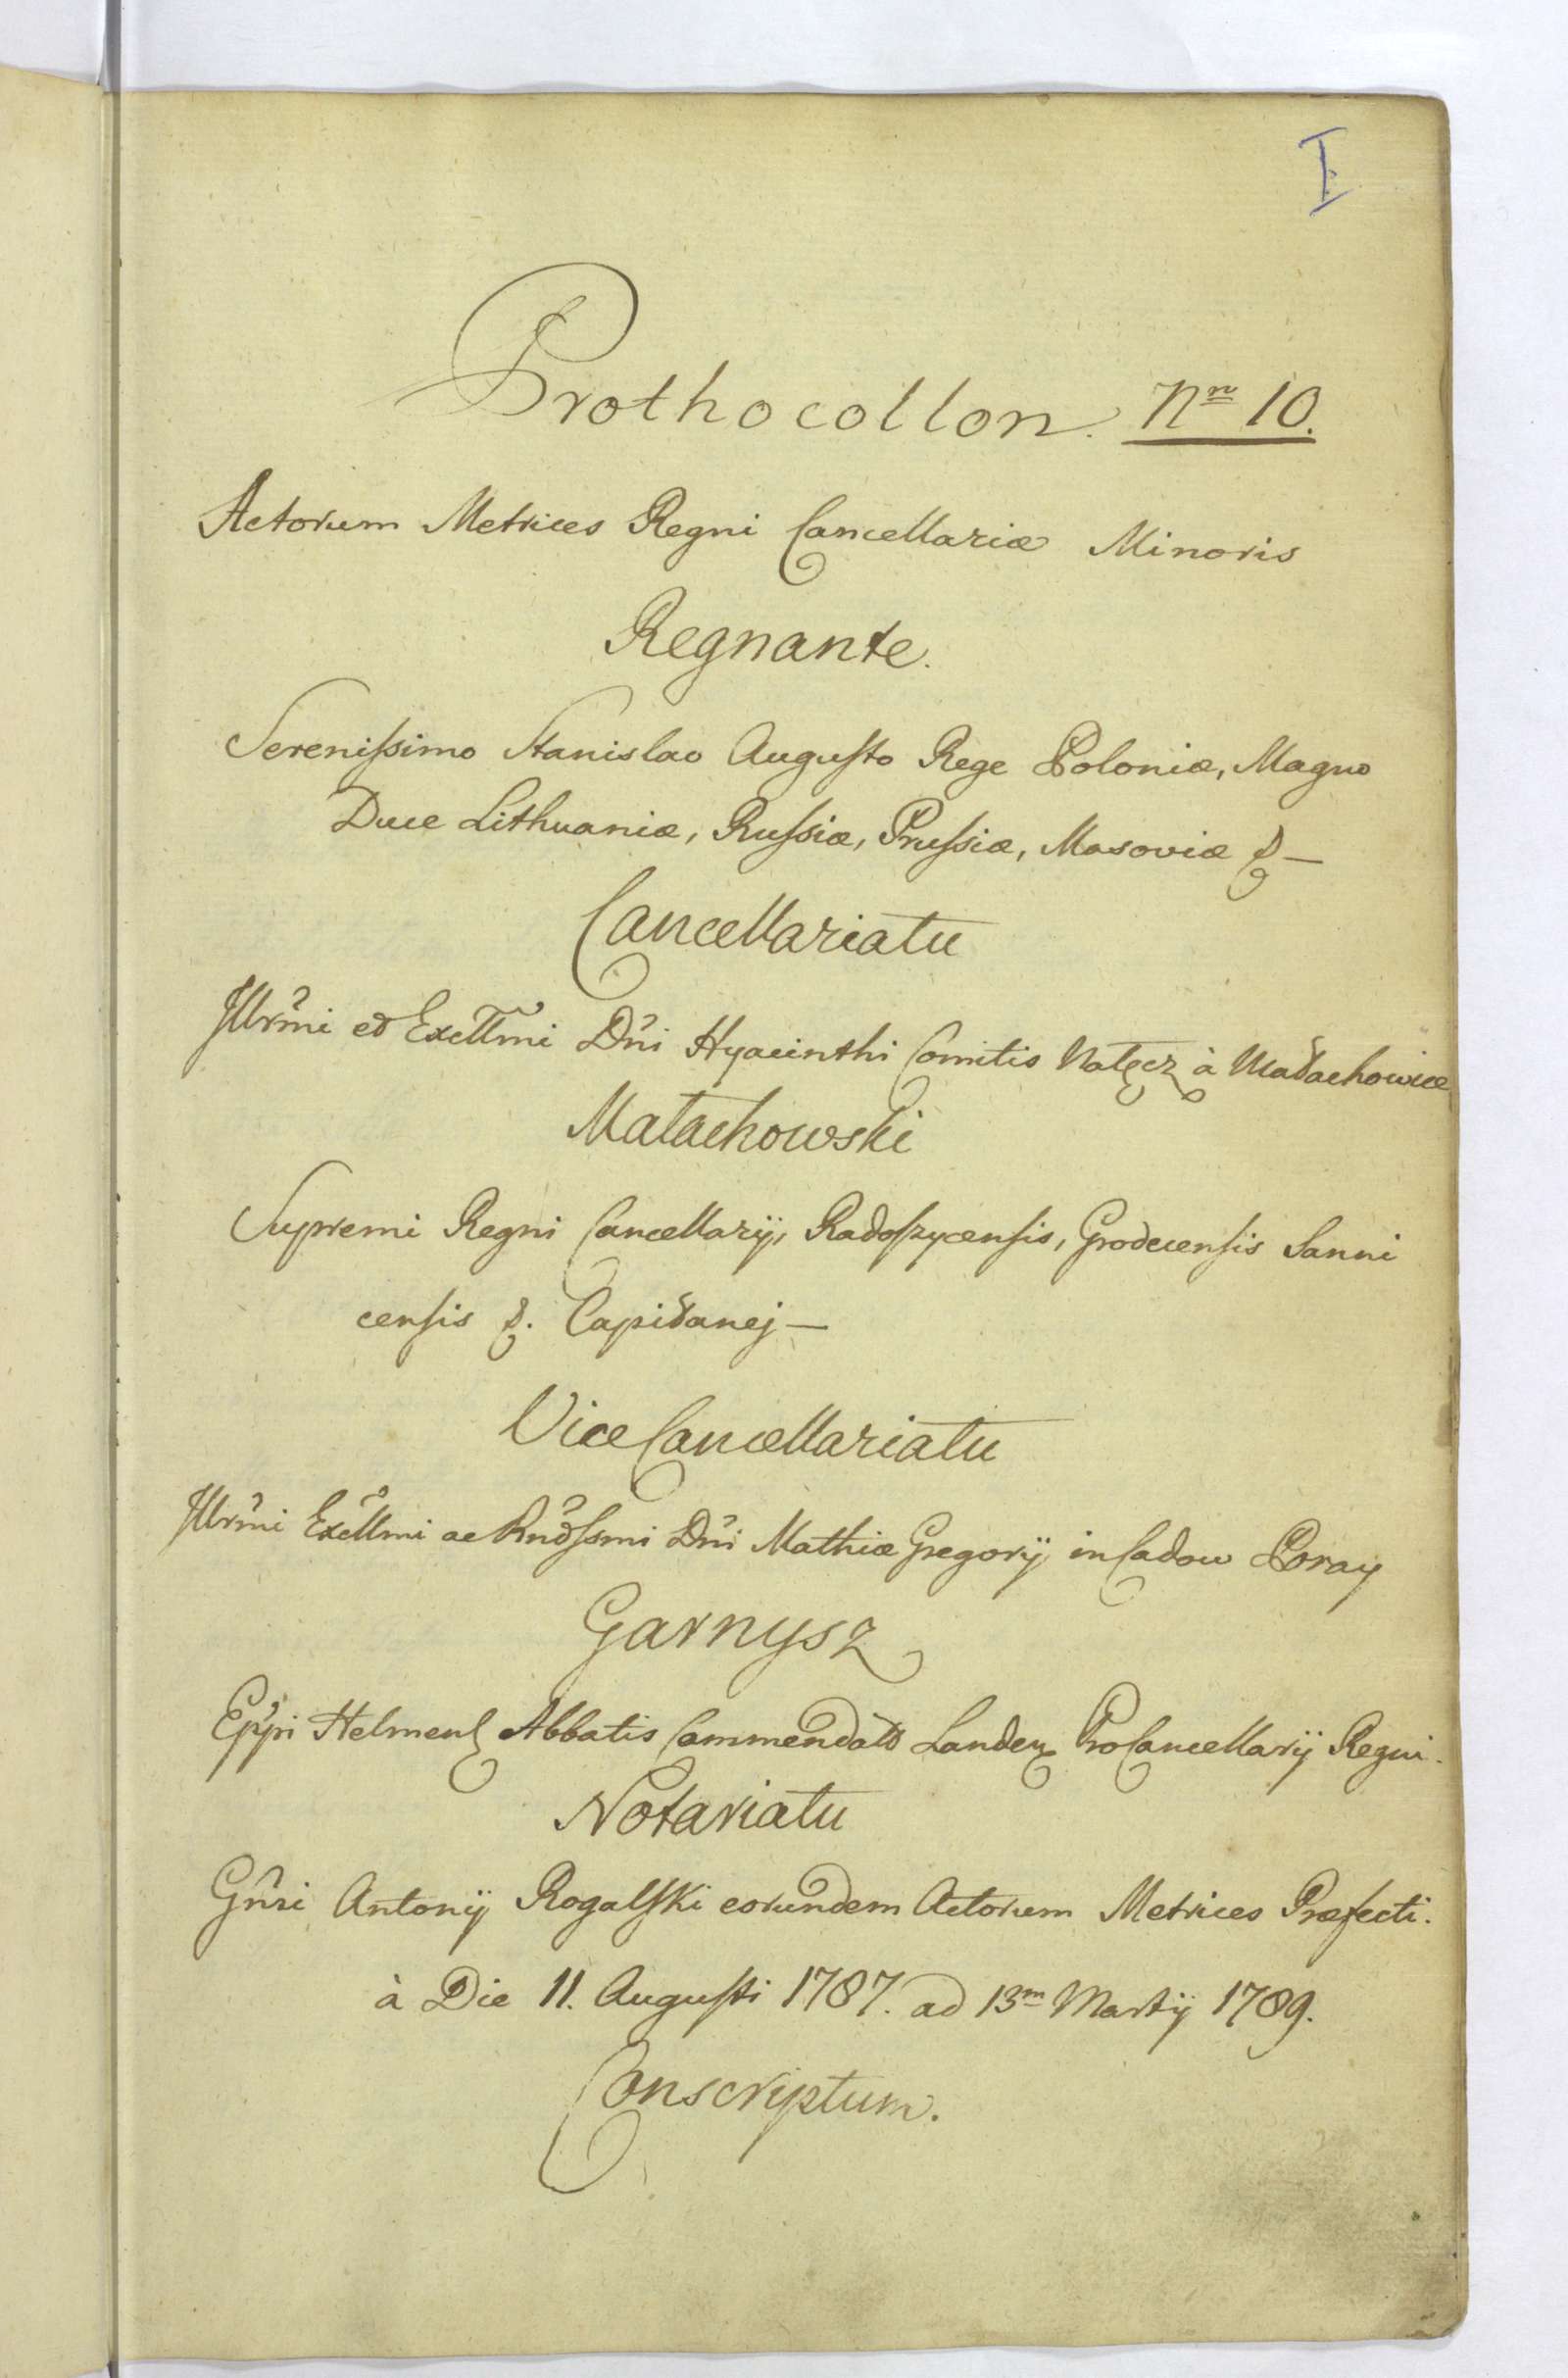 I
Prothocollon. Nrn 10.
Actorum Metrices Regni Cancellariæ Minoris
Regnante.
Serenissimo Stanislao Augusto Rege Poloniæ, Magno
Duce Lithuaniæ, Russiæ, Prussiæ, Masoviæ &—
Cancellariatu
Jllrmi et Excllmi Dni Hyacinthi Comitis Nałęcz à Małachowice
Małachowski
Supremi Regni Cancellarij, Radoszycensis, Grodecensis Sanni
censis &. Capitanej—
ViceCancellariatu
Jllrmi Excllmi ac Rndssmi Dni Mathiæ Gregorij in Cadow Poray
Garnysz
Eppi Helmens Abbatis Commendats Landen ProCancellarij Regni.
Notariatu
Gnsi Antonij Rogalski eorundem Actorum Metrices Præfecti.
à Die 11. Augusti 1787. ad 13m Martij 1789.
Conscriptum.